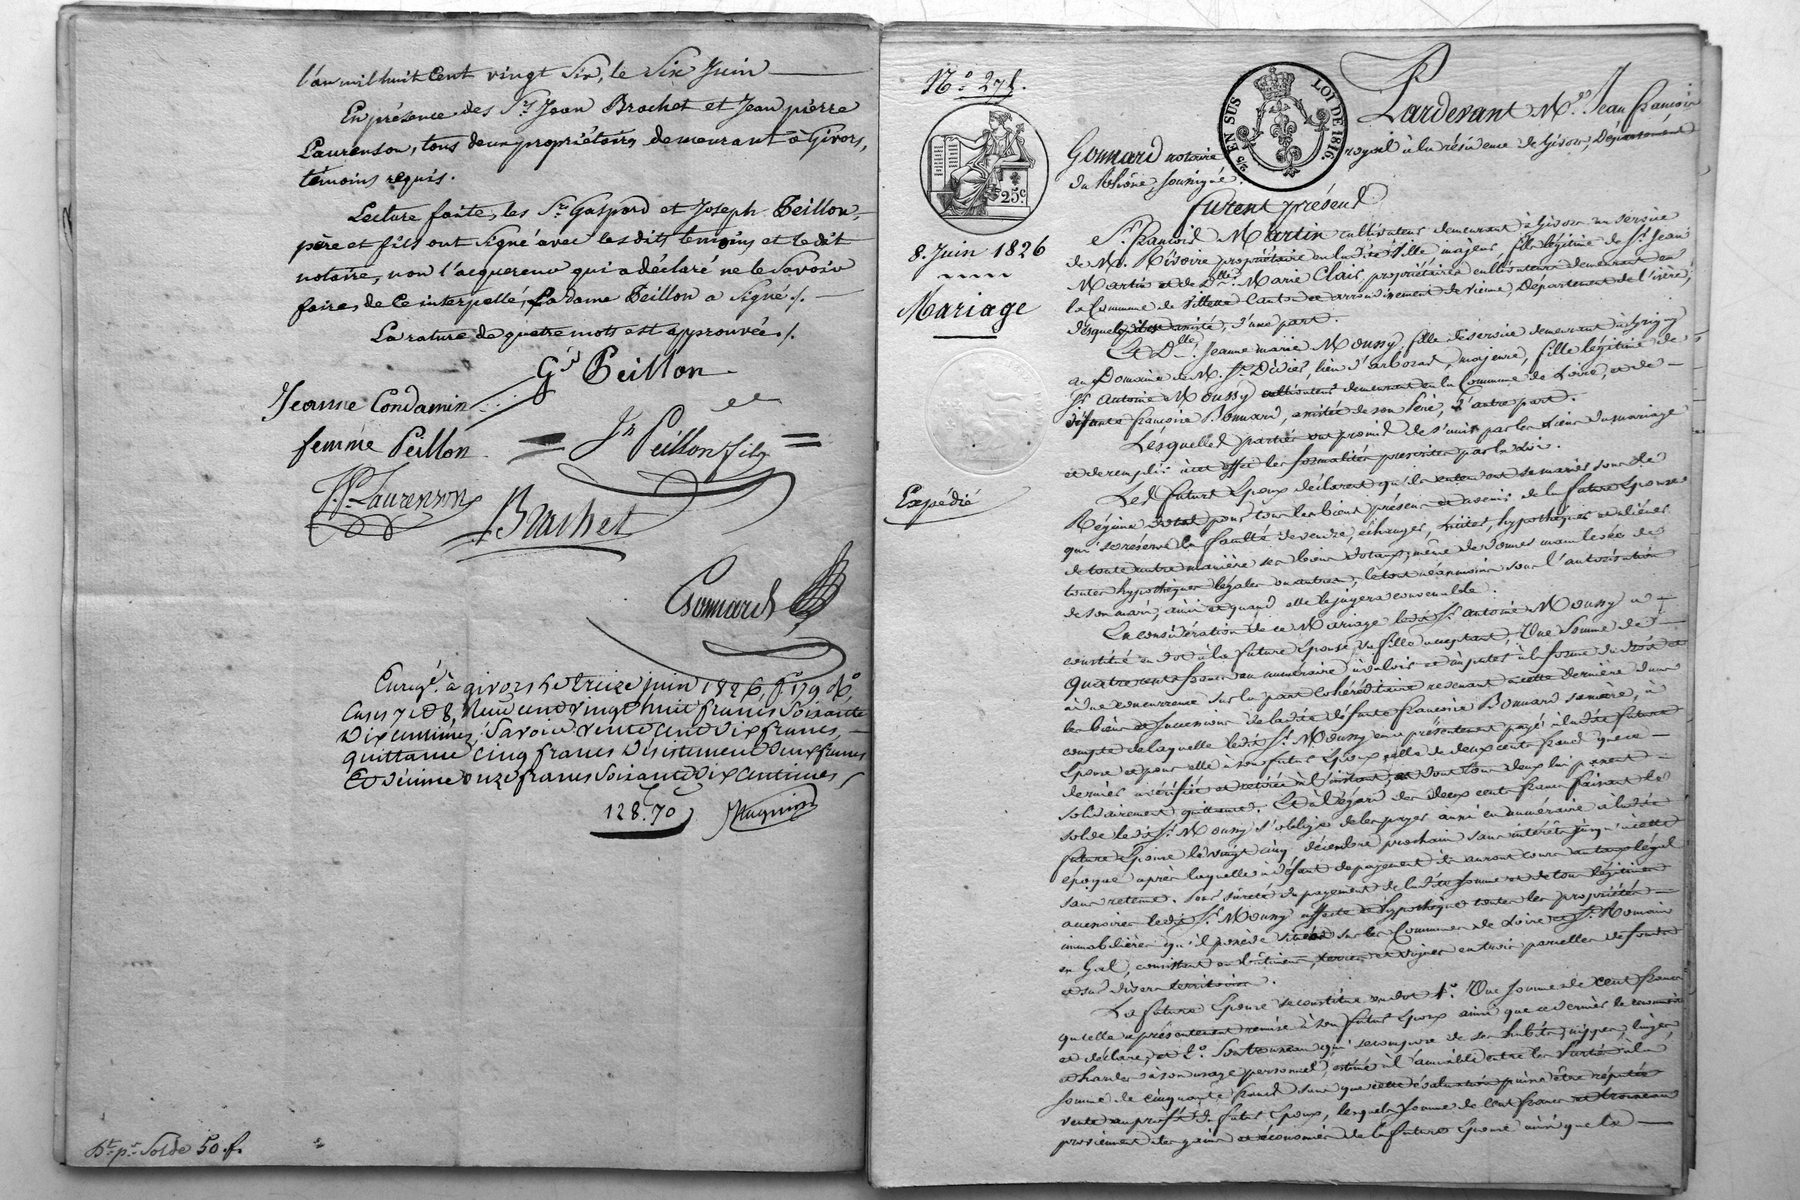 l'an mil huit Cent vingt Six, le Six Juin
En présence des Srs Jean Brachet et Jean pierre
Laurenson, tous deux propriétaires demeurant à Givors,
témoins requis.
Lecture faite, les Srs Gaspard et Joseph Peillon,
père et fils ont signé avec les dits temoins et le dit
notaire, non l'acquereur qui a déclaré ne le Savoir
faire, de Ce interpellé, La dame Peillon a Signé ./.
La rature de quatre mots est approuvée ./.
Gd Peillon
Jeanne Condamin
femme Peillon
Jh Peillon fils
J.P. Laurenson
Brachet
Gonnard
Enregé à givors le treize juin 1826, fo 179 Ro
Cases 7 et 8, Reçu cent vingt huit francs Soixante
Dix centimes, Savoir vente cent dix francs,
quittance cinq francs Désistement deux francs
Et décime onze francs Soixante Dix Centimes
128.70
Dt pr Solde 50 f.
No 275.
EN SUS
LOI DE 1816
25c
8. Juin 1826
Mariage
Expédié
Pardevant Me Jean françois
Gonnard notaire royal à la résidence de Givors, Département
du Rhône, soussigné.
furent présens
Sr. François Martin cultivateur demeurant à Givors au service
de Mr. Rivoire propriétaire en la dite Ville, majeur, fils légitime de Sr. Jean
Martin et de Dlle. Marie Clair propriétaires cultivateurs demeurant en
la Commune de Villette Canton et arrondissement de Vienne, Département de l'isère,
desquels il est assisté, d'une part.
Et Dlle. Jeanne marie Moussy, fille de service demeurant à Grigny
au Domaine de M. St. Didier, lieu d'arboras, majeure, fille légitime de
Sr. Antoine Moussy cultivateur demeurant en la Commune de Loire, et de
défunte françoise Bonnard, assistée de son Père, d'autre part.
Lesquelles parties ont promis de s'unir par les liens du mariage
et de remplir à cet effet les formalités prescrites par la loi.
Les futurs Epoux déclarent qu'ils entendent se mariés sous le
Régime dotal pour tous les biens présens et avenir de la future Epouse
qui se réserve la faculté de vendre, échanger, hypothéquer et aliéner
de toute autre manière ses biens dotaux, même de donner main levée de
toutes hypothèques légales ou autres, le tout néanmoins sous l'autorisation
de son mari, ainsi et quand elle le jugera convenable.
En considération de ce Mariage ledit Sr. antoine Moussy a
constitué en dot à la future Epouse sa fille acceptant, Une Somme de
Quatre cents francs en numéraire à valoir et imputer à la forme du droit et
à due concurrence sur la part cohéréditaire revenant à cette dernière dans
les biens et successions de ladite défunte françoise Bonnard sa mère, à
compte de laquelle ledit Sr. Moussy en a présentement payé à ladite future
Epouse et pour elle à son futur Epoux celle de deux cents francs que ce
dernier a vérifiée et retirée à l'instant, et dont tous deux lui passent
solidairement quittance. Et à l'égard des deux cents francs faisant le
solde ledit Sr. Moussy s'oblige de les payer aussi en numéraire à ladite
future Epouse le vingt cinq décembre prochain sans intérêts jusqu'à cette
époque après laquelle à défaut de payement ils auront cours au taux légal
sans retenue. Pour sûreté du payement de ladite somme et de tous légitimes
accessoires ledit Sr. Moussy affecte et hypothèque toutes les propriétés
immobilières qu'il possède situées sur les Communes de Loire et St. Romain
en Gal, consistant en bâtiment, terres et vignes en trois parcelles de fonds
et sur divers territoires.
La future Epouse se constitue en dot 1o. Une somme de cent francs
qu'elle a présentement remise à son futur Epoux ainsi que ce dernier le reconnaît
et déclare, et 2o. Son trousseau qui se compose de ses habits, nippes, linges,
et hardes à son usage personnel, estimé à l'amiable entre les Parties à la
somme de cinquante francs sans que cette évaluation puisse être réputée
vente au profit du futur Epoux, lesquels somme de Cent francs et trousseau
proviennent des gains et économies de la future Epouse ainsi que le